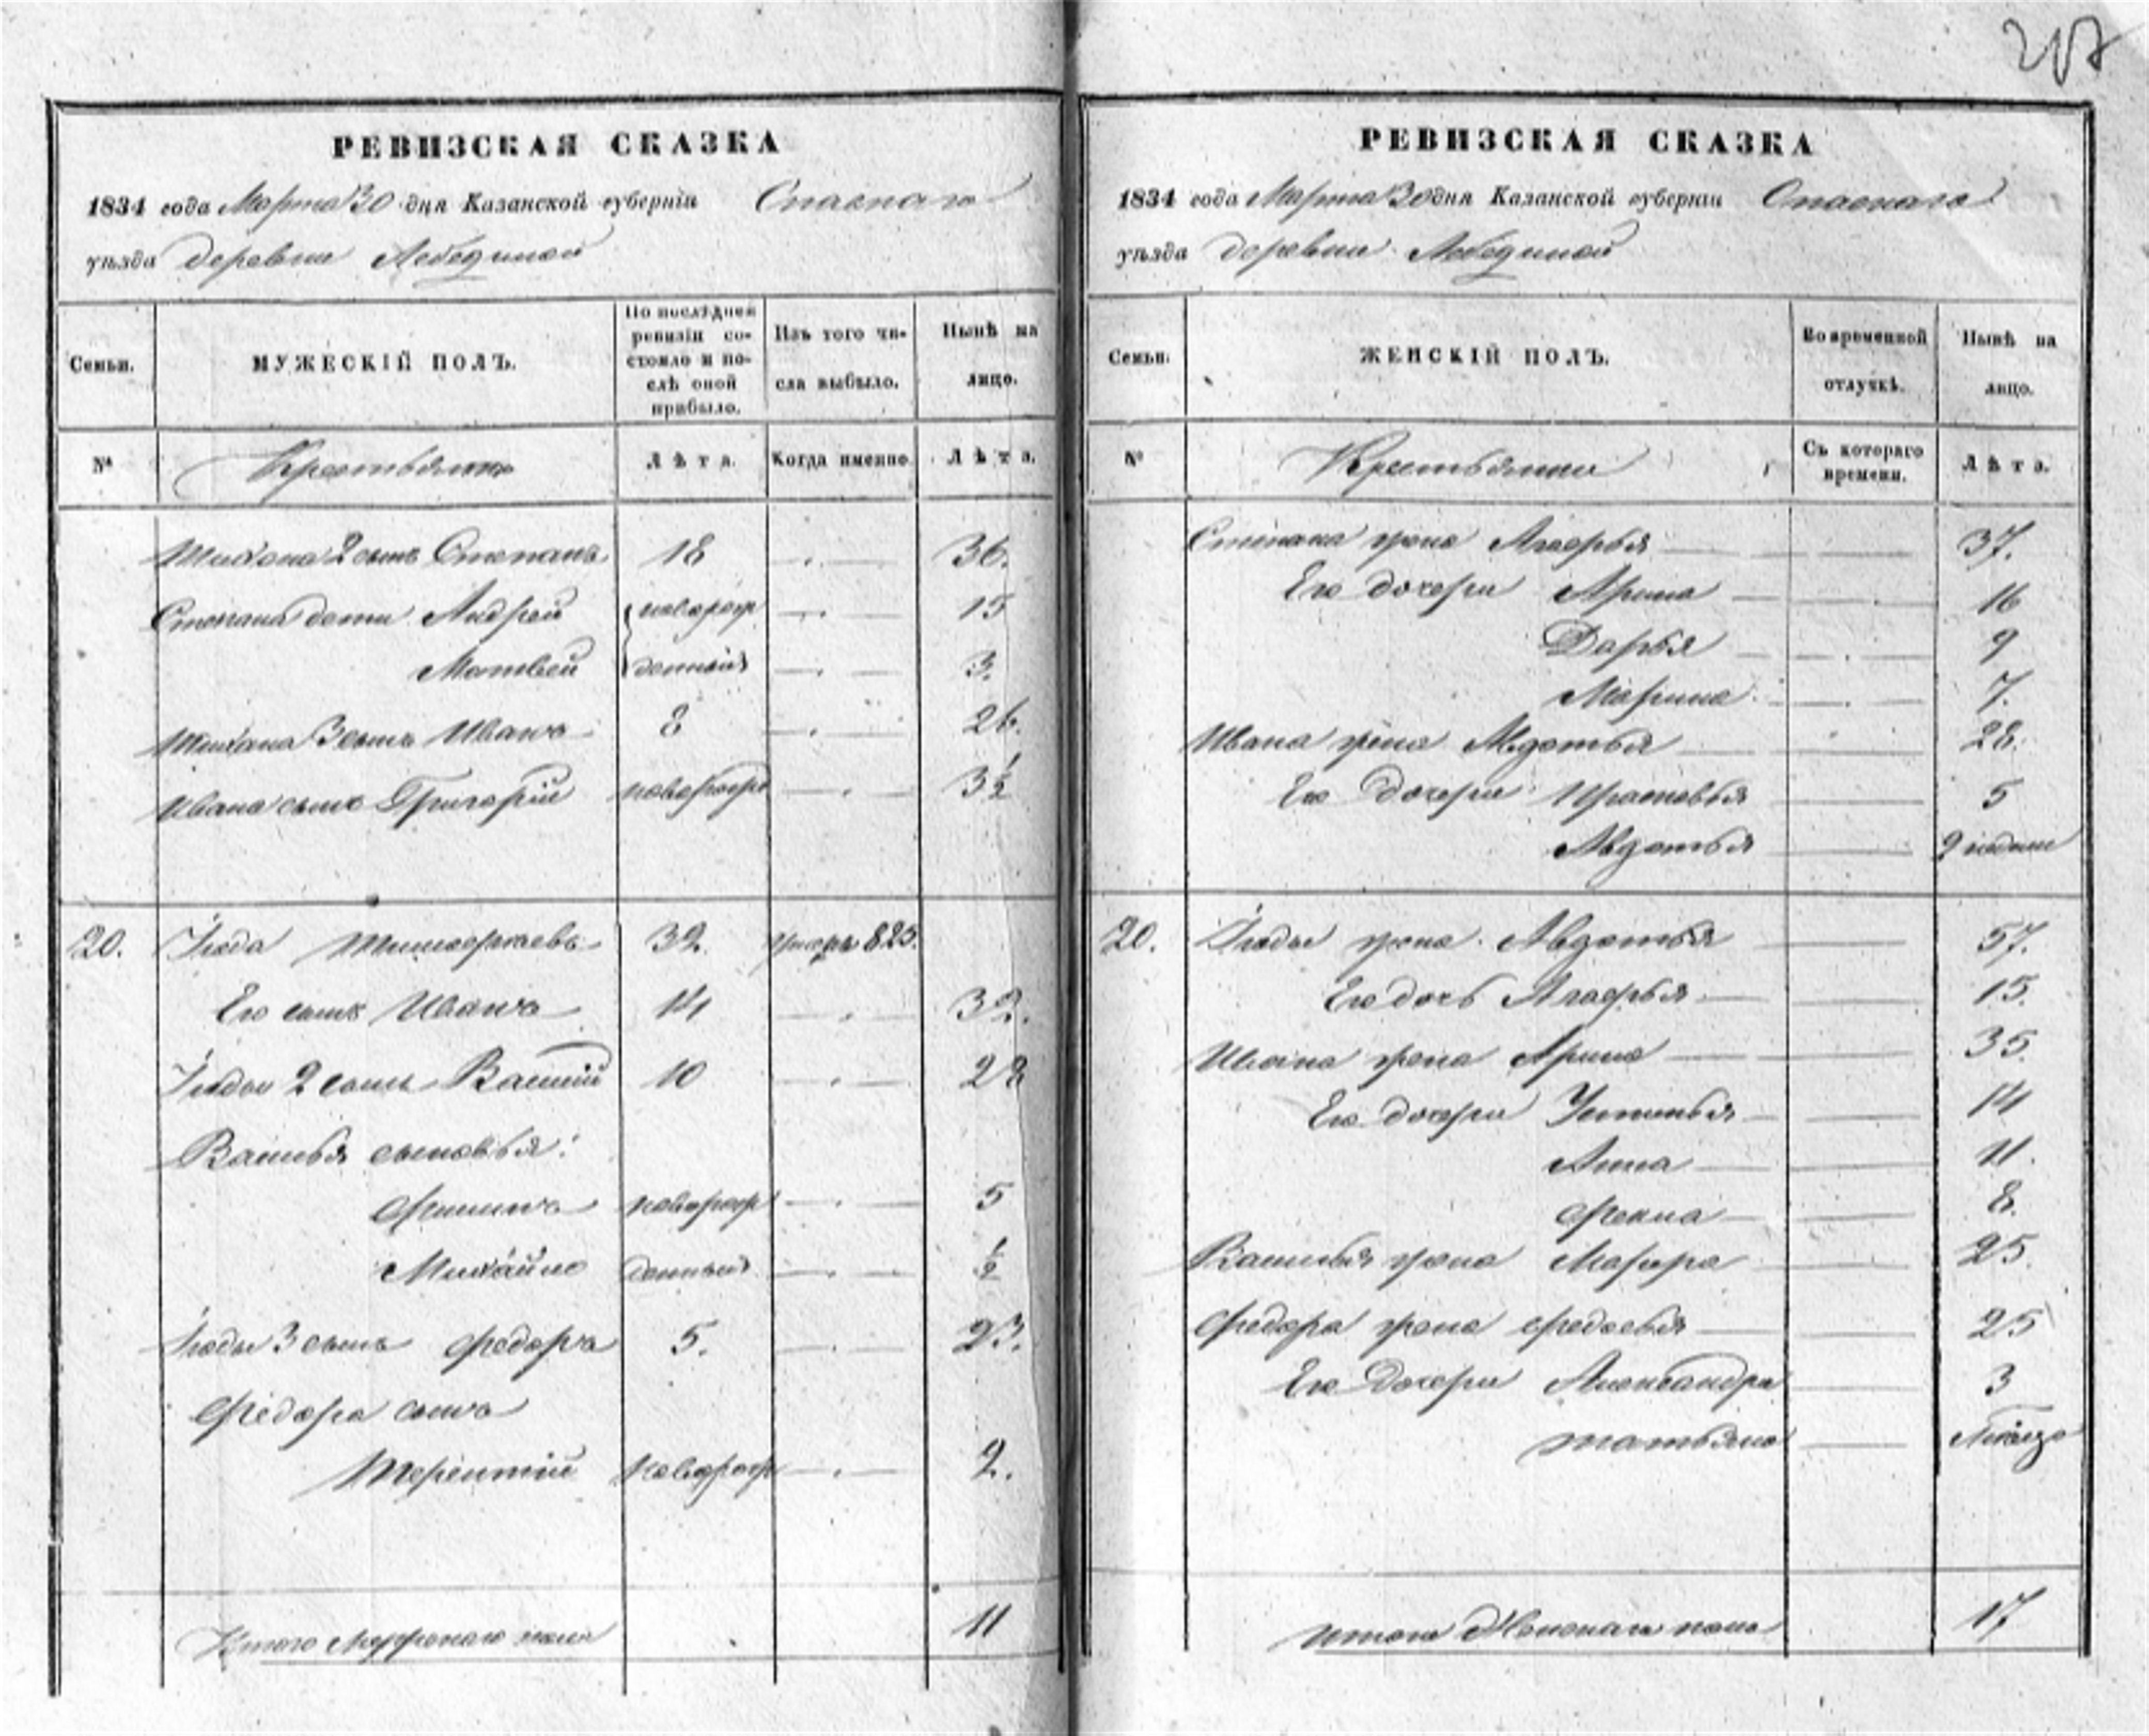 217
РЕВИЗСКАЯ СКАЗКА
1834 года Марта 30 дня Казанской губернии Спаскаго
уѣзда деревни Лебединой
Семьи.
МУЖЕСКІЙ ПОЛЪ.
По послѣдней ревизіи состояло и послѣ оной прибыло.
Изъ того числа выбыло.
Нынѣ на лицо.
№
Крестьяне
Лѣта.
Когда именно.
Лѣта.
Степанъ 18 36.
Степана дети Андрей новорож 15
Матвей денныя 3.
3 сынъ Иванъ 8 26.
Ивана сынъ Григорій новорожд 3 1/2
20. 32. 825.
Его сынъ Иванъ 14 32.
2 сынъ Василій 10 28
Василья сыновья:
Филипъ новорож 5
Михайло денныя 1/2
3 сынъ Федоръ 5. 23.
Федора сынъ
Терентій новорож 2.
Итого мужескаго пола 11
РЕВИЗСКАЯ СКАЗКА
1834 года Марта 30 дня Казанской губерніи Спаскаго
уѣзда деревни Лебединой
Семьи.
ЖЕНСКІЙ ПОЛЪ.
Во временной отлучкѣ.
Нынѣ на лицо.
№
Крестьянки
Съ котораго времени.
Лѣта.
Степана жена Агафья 37.
Его дочери Арина 16
Дарья 9
Марина 7.
Ивана жена Авдотья 28.
Его дочери Прасковья 5
Авдотья 2 недели
20. жена Авдотья 57.
Его дочь Агафья 15.
Ивана жена Арина 35.
Его дочери Устинья 14
Анна 11.
Фекла 8.
Василья жена Марфа 25.
Федора жена Федосья 25
Его дочери Александра 3
Татьяна
Итого Женскаго пола 17